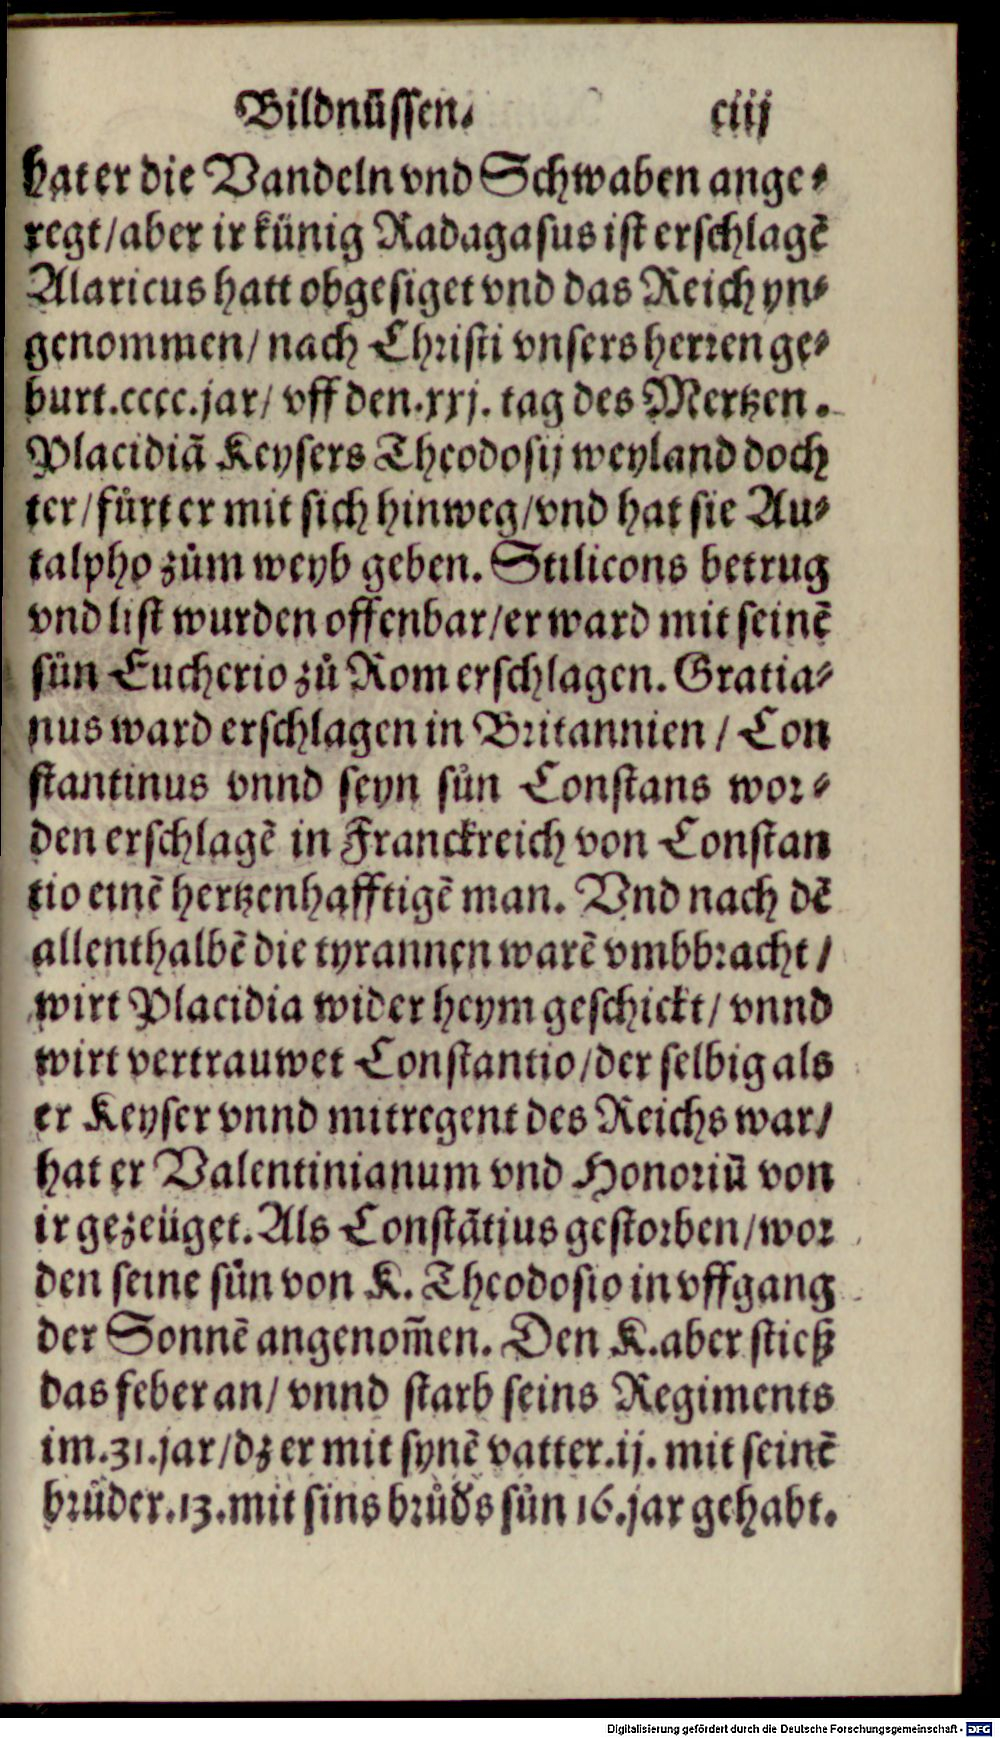 Bildnüssen. ciij
hat er die Vandeln vnd Schwaben ange⸗
regt/aber ir künig Radagasus ist erschlagẽ
Alaricus hatt obgesiget vnd das Reich yn⸗
genommen/ nach Christi vnsers herren ge⸗
burt.cccc.jar/ vff den.xxj. tag des Mertzen.
Placidiã Keysers Theodosij weyland doch
ter/fürt er mit sich hinweg/vnd hat sie Au⸗
talpho zům weyb geben. Stilicons betrug
vnd list wurden offenbar/er ward mit seinẽ
sůn Eucherio zů Rom erschlagen. Gratia⸗
nus ward erschlagen in Britannien / Con
stantinus vnnd seyn sůn Constans wor⸗
den erschlagẽ in Franckreich von Constan
tio einẽ hertzenhafftigẽ man. Vnd nach dẽ
allenthalbẽ die tyrannen warẽ vmbbracht/
wirt Placidia wider heym geschickt/ vnnd
wirt vertrauwet Constantio/der selbig als
er Keyser vnnd mitregent des Reichs war/
hat er Valentinianum vnd Honoriũ von
ir gezeüget. Als Constãtius gestorben/wor
den seine sün von K. Theodosio in vffgang
der Sonnẽ angenom̃en. Den K.aber stieß
das feber an/ vnnd starb seins Regiments
im.31.jar/dz er mit synẽ vatter.ij. mit seinẽ
brůder.13.mit sins brůd's sůn 16.jar gehabt.
Digitalisierung gefördert durch die Deutsche Forschungsgemeinschaft - DFG